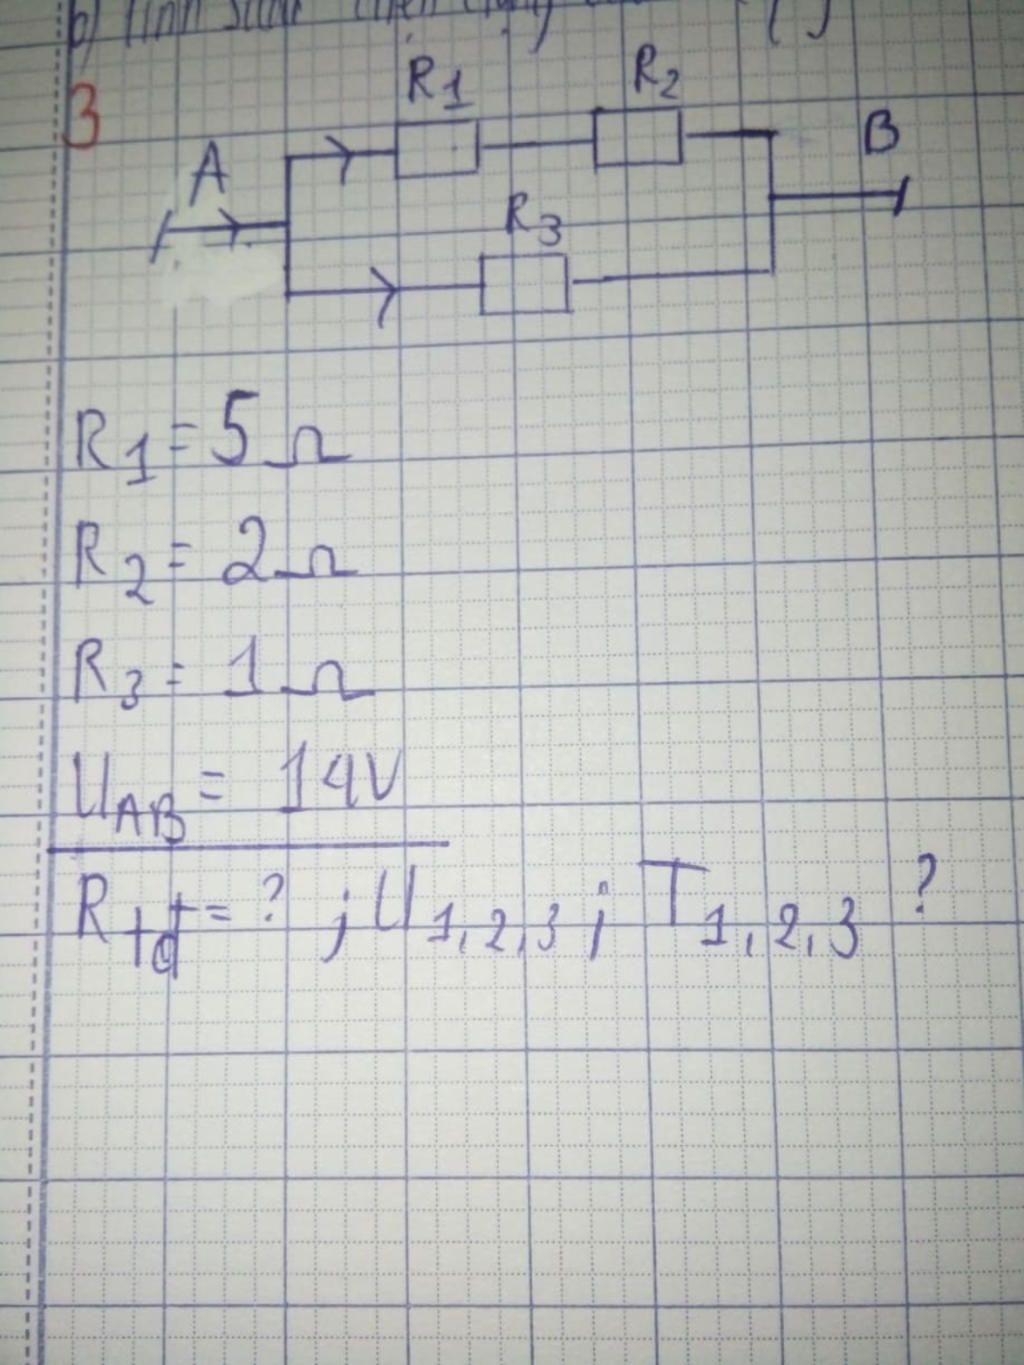 b) Tính
3
R1
R2
A
B
R3
R1 = 5Ω
R2 = 2Ω
R3 = 1Ω
UAB = 14V
Rtđ = ? ; U1,2,3 ; I1,2,3 ?